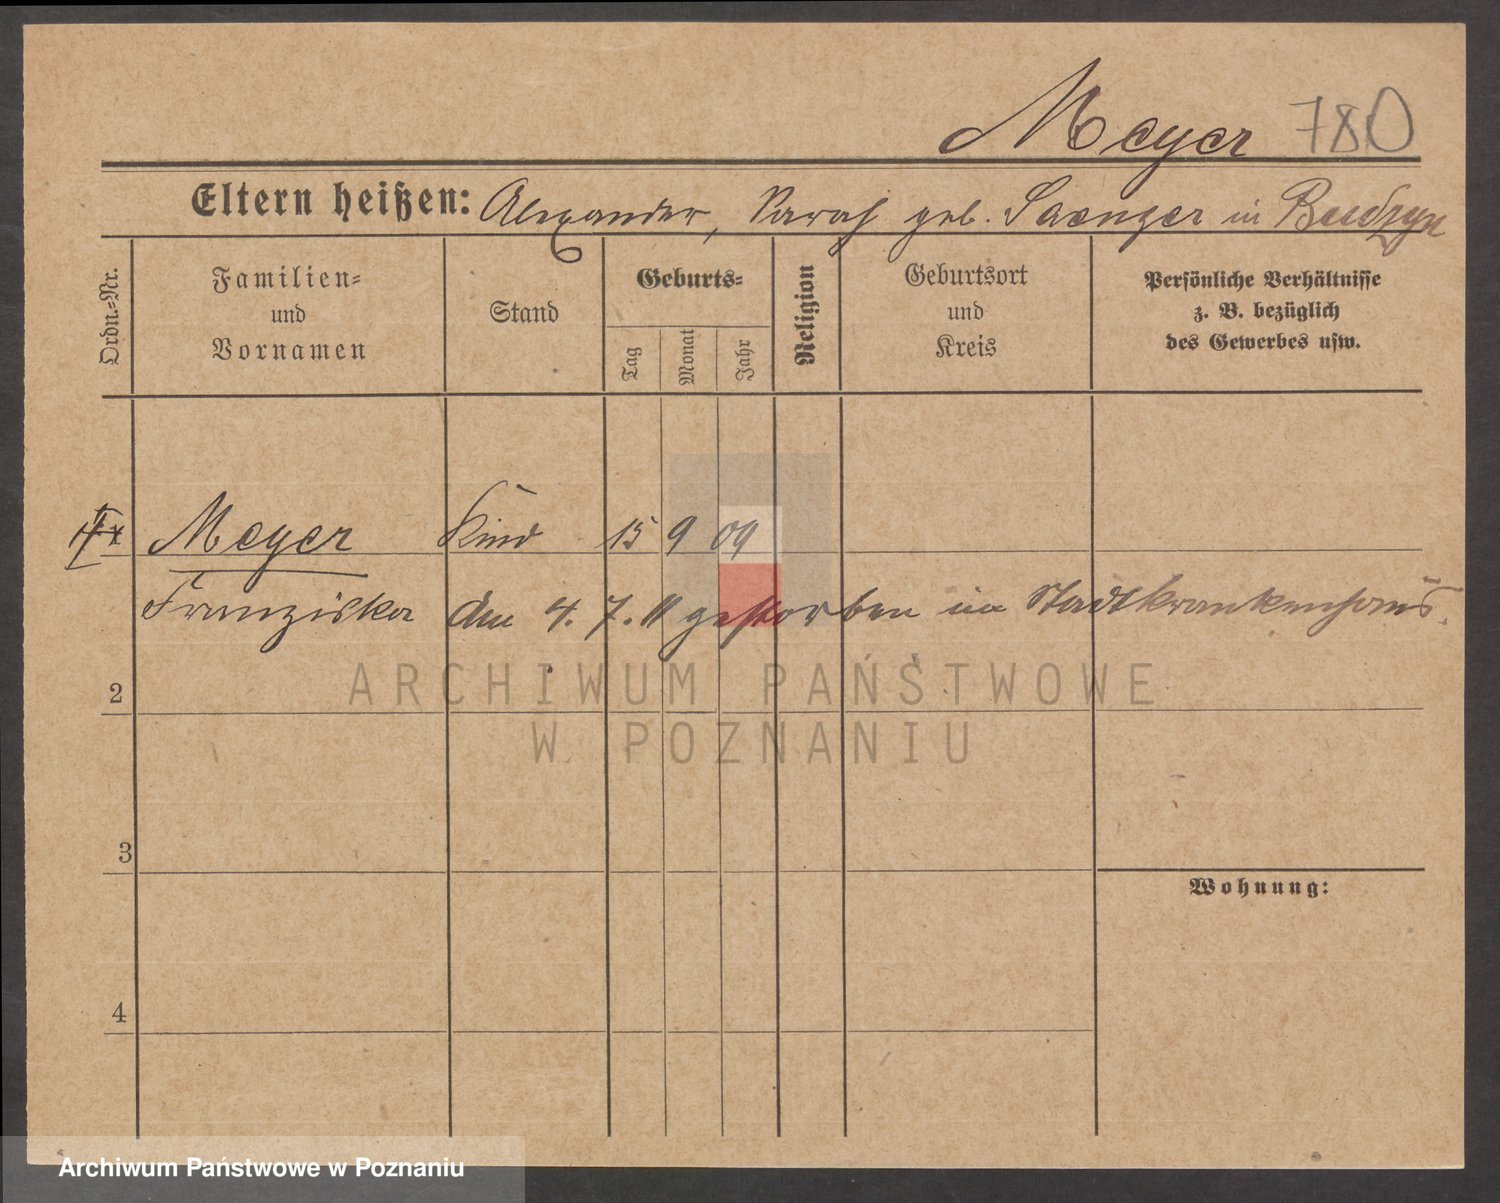 Meyer 780
Eltern heißen: Alexander, Sarah geb. Saenger in Budzyn
Ordn.-Nr.
Familien-
und
Vornamen
Stand
Geburts-
Tag
Monat
Jahr
Religion
Geburtsort
und
Kreis
Persönliche Verhältnisse
z. B. bezüglich
des Gewerbes usw.
Meyer Kind 15 9 09
Franziska den 4. 7. 11 gestorben im Stadtkrankenhaus.
ARCHIWUM PAŃSTWOWE
2
W POZNANIU
3
Wohnung:
4
Archiwum Państwowe w Poznaniu